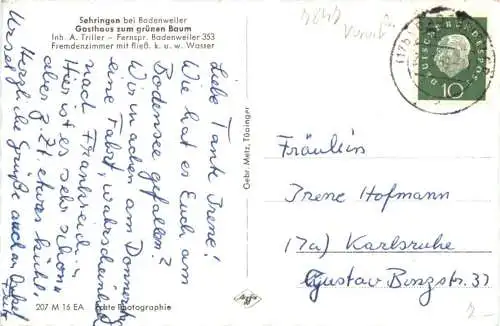 Sehringen bei Badenweiler
Gasthaus zum grünen Baum
Inh. A. Triller - Fernspr. Badenweiler 353
Fremdenzimmer mit fließ. k. u. w. Wasser
Liebe Tante Irene!
Wie hat es Euch am
Bodensee gefallen?
Wir machen am Donnerstag
eine Fahrt, wahrscheinlich
nach Frankreich.
Hier ist es sehr schön,
aber z. Zt. etwas kühl.
Herzliche Grüße auch an Onkel
Fritz
Ursel
Gebr. Metz, Tübingen
207 M 16 EA
Echte Photographie
Agfa
DEUTSCHE BUNDESPOST
10
Fräulein
Irene Hofmann
17a) Karlsruhe
Gustav Binzstr. 37
2.-